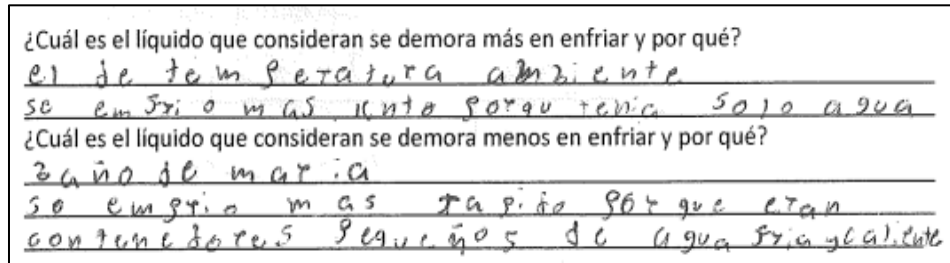 ¿Cuál es el líquido que consideran se demora más en enfriar y por qué?
el de temperatura ambiente
se emfrio mas lento porqu tenia solo agua
¿Cuál es el líquido que consideran se demora menos en enfriar y por qué?
baño de maria
se emfrio mas rapido porque eran
contenedores pequeños de agua fria y caliente